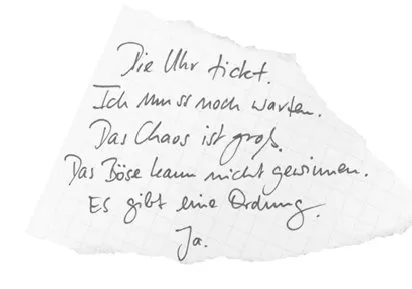 Die Uhr tickt.
Ich muss noch warten.
Das Chaos ist groß.
Das Böse kann nicht gewinnen.
Es gibt eine Ordnung.
Ja.